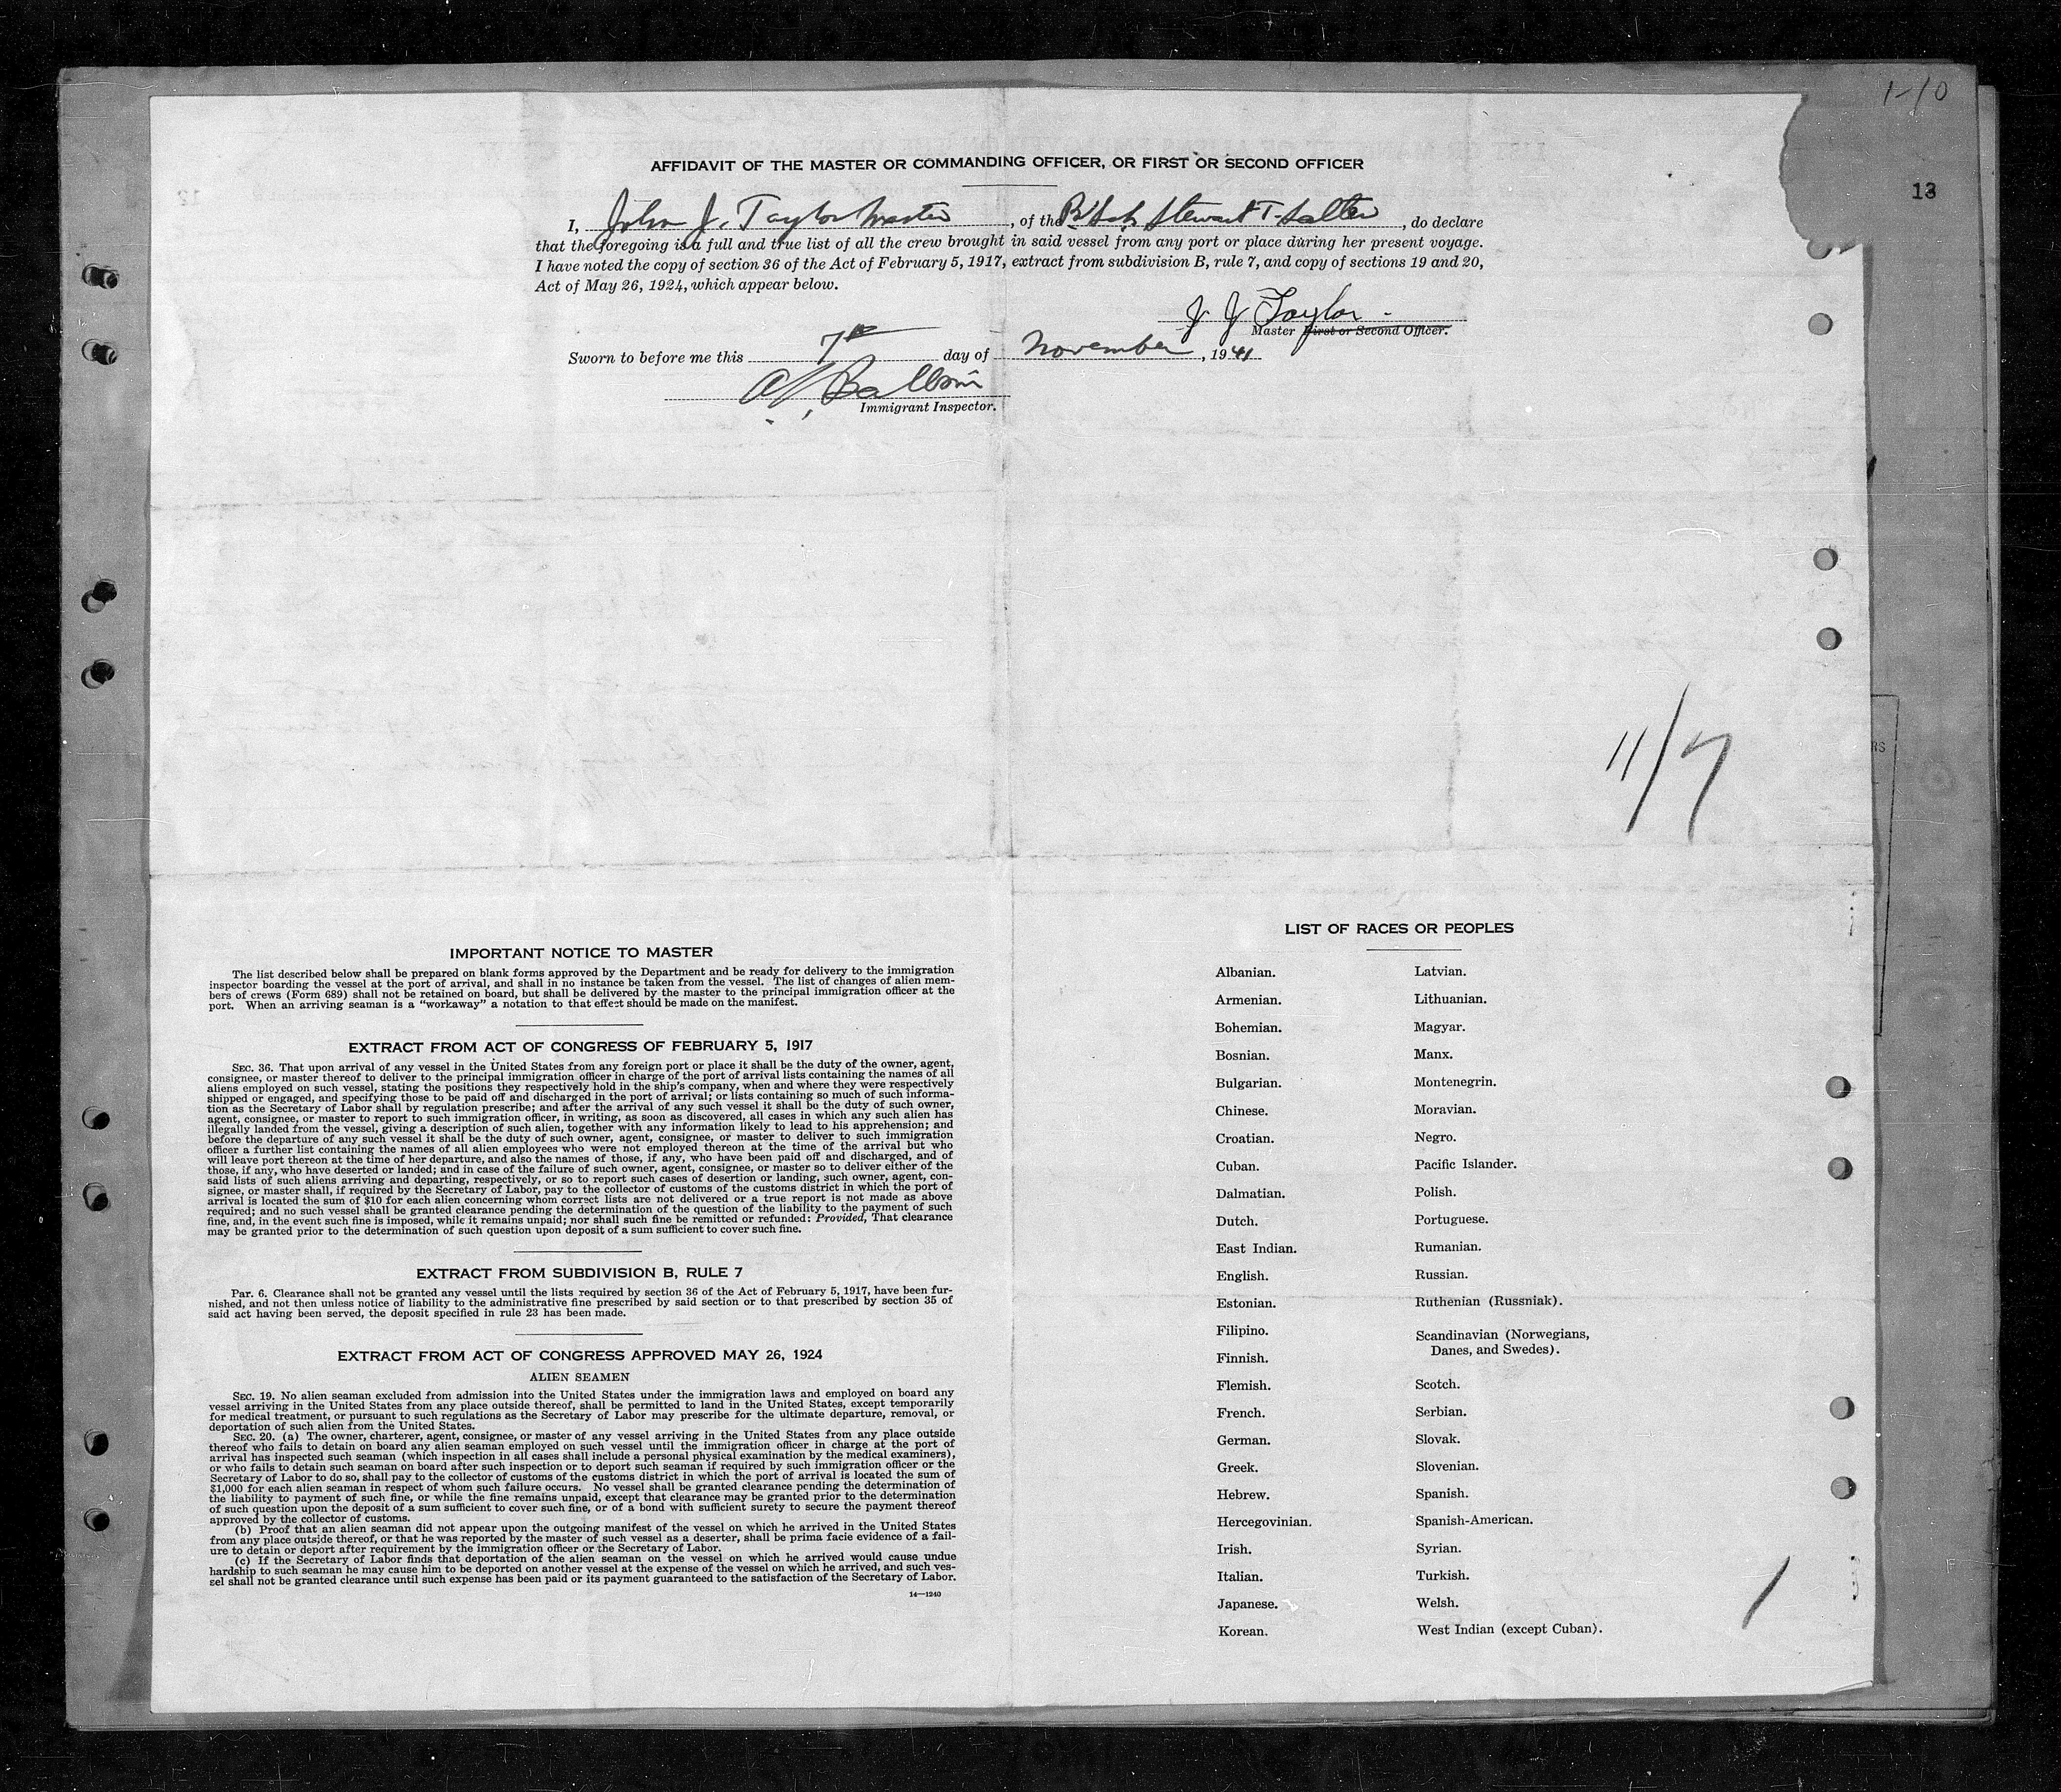 1-10
13
AFFIDAVIT OF THE MASTER OR COMMANDING OFFICER, OR FIRST OR SECOND OFFICER
I, John J. Taylor Master, of the Br Sch Stewart T. Salter, do declare
that the foregoing is a full and true list of all the crew brought in said vessel from any port or place during her present voyage.
I have noted the copy of section 36 of the Act of February 5, 1917, extract from subdivision B, rule 7, and copy of sections 19 and 20,
Act of May 26, 1924, which appear below.
J J Taylor
Master First or Second Officer.
Sworn to before me this 7th day of November, 1941
Immigrant Inspector.
11/7
IMPORTANT NOTICE TO MASTER
The list described below shall be prepared on blank forms approved by the Department and be ready for delivery to the immigration
inspector boarding the vessel at the port of arrival, and shall in no instance be taken from the vessel. The list of changes of alien mem-
bers of crews (Form 689) shall not be retained on board, but shall be delivered by the master to the principal immigration officer at the
port. When an arriving seaman is a "workaway" a notation to that effect should be made on the manifest.
EXTRACT FROM ACT OF CONGRESS OF FEBRUARY 5, 1917
SEC. 36. That upon arrival of any vessel in the United States from any foreign port or place it shall be the duty of the owner, agent,
consignee, or master thereof to deliver to the principal immigration officer in charge of the port of arrival lists containing the names of all
aliens employed on such vessel, stating the positions they respectively hold in the ship's company, when and where they were respectively
shipped or engaged, and specifying those to be paid off and discharged in the port of arrival; or lists containing so much of such informa-
tion as the Secretary of Labor shall by regulation prescribe; and after the arrival of any such vessel it shall be the duty of such owner,
agent, consignee, or master to report to such immigration officer, in writing, as soon as discovered, all cases in which any such alien has
illegally landed from the vessel, giving a description of such alien, together with any information likely to lead to his apprehension; and
before the departure of any such vessel it shall be the duty of such owner, agent, consignee, or master to deliver to such immigration
officer a further list containing the names of all alien employees who were not employed thereon at the time of the arrival but who
will leave port thereon at the time of her departure, and also the names of those, if any, who have been paid off and discharged, and of
those, if any, who have deserted or landed; and in case of the failure of such owner, agent, consignee, or master so to deliver either of the
said lists of such aliens arriving and departing, respectively, or so to report such cases of desertion or landing, such owner, agent, con-
signee, or master shall, if required by the Secretary of Labor, pay to the collector of customs of the customs district in which the port of
arrival is located the sum of $10 for each alien concerning whom correct lists are not delivered or a true report is not made as above
required; and no such vessel shall be granted clearance pending the determination of the question of the liability to the payment of such
fine, and, in the event such fine is imposed, while it remains unpaid; nor shall such fine be remitted or refunded: Provided, That clearance
may be granted prior to the determination of such question upon deposit of a sum sufficient to cover such fine.
EXTRACT FROM SUBDIVISION B, RULE 7
Par. 6. Clearance shall not be granted any vessel until the lists required by section 36 of the Act of February 5, 1917, have been fur-
nished, and not then unless notice of liability to the administrative fine prescribed by said section or to that prescribed by section 35 of
said act having been served, the deposit specified in rule 23 has been made.
EXTRACT FROM ACT OF CONGRESS APPROVED MAY 26, 1924
ALIEN SEAMEN
SEC. 19. No alien seaman excluded from admission into the United States under the immigration laws and employed on board any
vessel arriving in the United States from any place outside thereof, shall be permitted to land in the United States, except temporarily
for medical treatment, or pursuant to such regulations as the Secretary of Labor may prescribe for the ultimate departure, removal, or
deportation of such alien from the United States.
SEC. 20. (a) The owner, charterer, agent, consignee, or master of any vessel arriving in the United States from any place outside
thereof who fails to detain on board any alien seaman employed on such vessel until the immigration officer in charge at the port of
arrival has inspected such seaman (which inspection in all cases shall include a personal physical examination by the medical examiners),
or who fails to detain such seaman on board after such inspection or to deport such seaman if required by such immigration officer or the
Secretary of Labor to do so, shall pay to the collector of customs of the customs district in which the port of arrival is located the sum of
$1,000 for each alien seaman in respect of whom such failure occurs. No vessel shall be granted clearance pending the determination of
the liability to payment of such fine, or while the fine remains unpaid, except that clearance may be granted prior to the determination
of such question upon the deposit of a sum sufficient to cover such fine, or of a bond with sufficient surety to secure the payment thereof
approved by the collector of customs.
(b) Proof that an alien seaman did not appear upon the outgoing manifest of the vessel on which he arrived in the United States
from any place outside thereof, or that he was reported by the master of such vessel as a deserter, shall be prima facie evidence of a fail-
ure to detain or deport after requirement by the immigration officer or the Secretary of Labor.
(c) If the Secretary of Labor finds that deportation of the alien seaman on the vessel on which he arrived would cause undue
hardship to such seaman he may cause him to be deported on another vessel at the expense of the vessel on which he arrived, and such ves-
sel shall not be granted clearance until such expense has been paid or its payment guaranteed to the satisfaction of the Secretary of Labor.
14—1240
LIST OF RACES OR PEOPLES
Albanian.
Armenian.
Bohemian.
Bosnian.
Bulgarian.
Chinese.
Croatian.
Cuban.
Dalmatian.
Dutch.
East Indian.
English.
Estonian.
Filipino.
Finnish.
Flemish.
French.
German.
Greek.
Hebrew.
Hercegovinian.
Irish.
Italian.
Japanese.
Korean.
Latvian.
Lithuanian.
Magyar.
Manx.
Montenegrin.
Moravian.
Negro.
Pacific Islander.
Polish.
Portuguese.
Rumanian.
Russian.
Ruthenian (Russniak).
Scandinavian (Norwegians,
Danes, and Swedes).
Scotch.
Serbian.
Slovak.
Slovenian.
Spanish.
Spanish-American.
Syrian.
Turkish.
Welsh.
West Indian (except Cuban).
1